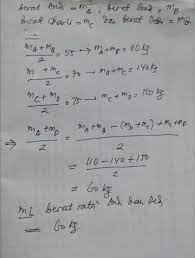 berat Anis = m_A, berat Budi = m_B
berat Charli = m_C dan berat Dedi = m_D
(m_A + m_B)/2 = 55 → m_A + m_B = 110 kg
(m + m_C)/2 = 70 → m_B + m_C = 140 kg
(m_C + m_D)/2 = 75 → m_C + m_D = 150 kg
⇒ (m_A + m_D)/2 = (m_A + m_B - (m_B + m_C) + m_C + m_D)/2
= (110 - 140 + 150)/2
= 60 kg
berat rata² dan Dedi
= 60 kg